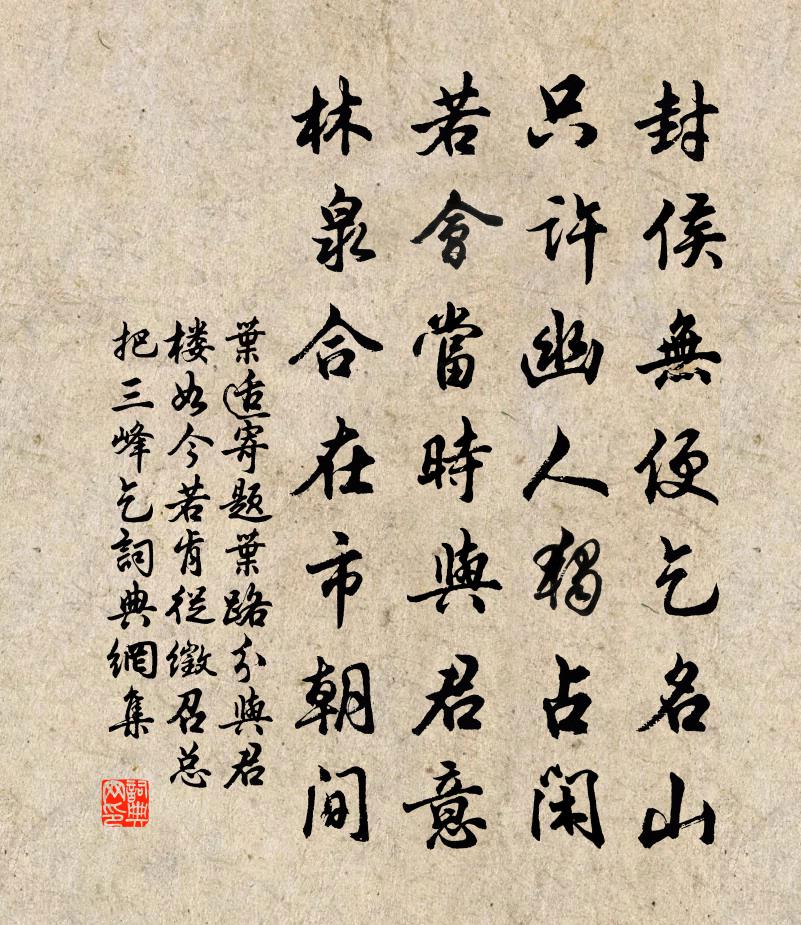 封侯無便乞名山
只許幽人獨占閑
若會當時與君意
林泉合在市朝間
葉适寄題葉路分與君
楼如今若肯從徵召总
把三峰乞詞典網集
詞典
网印